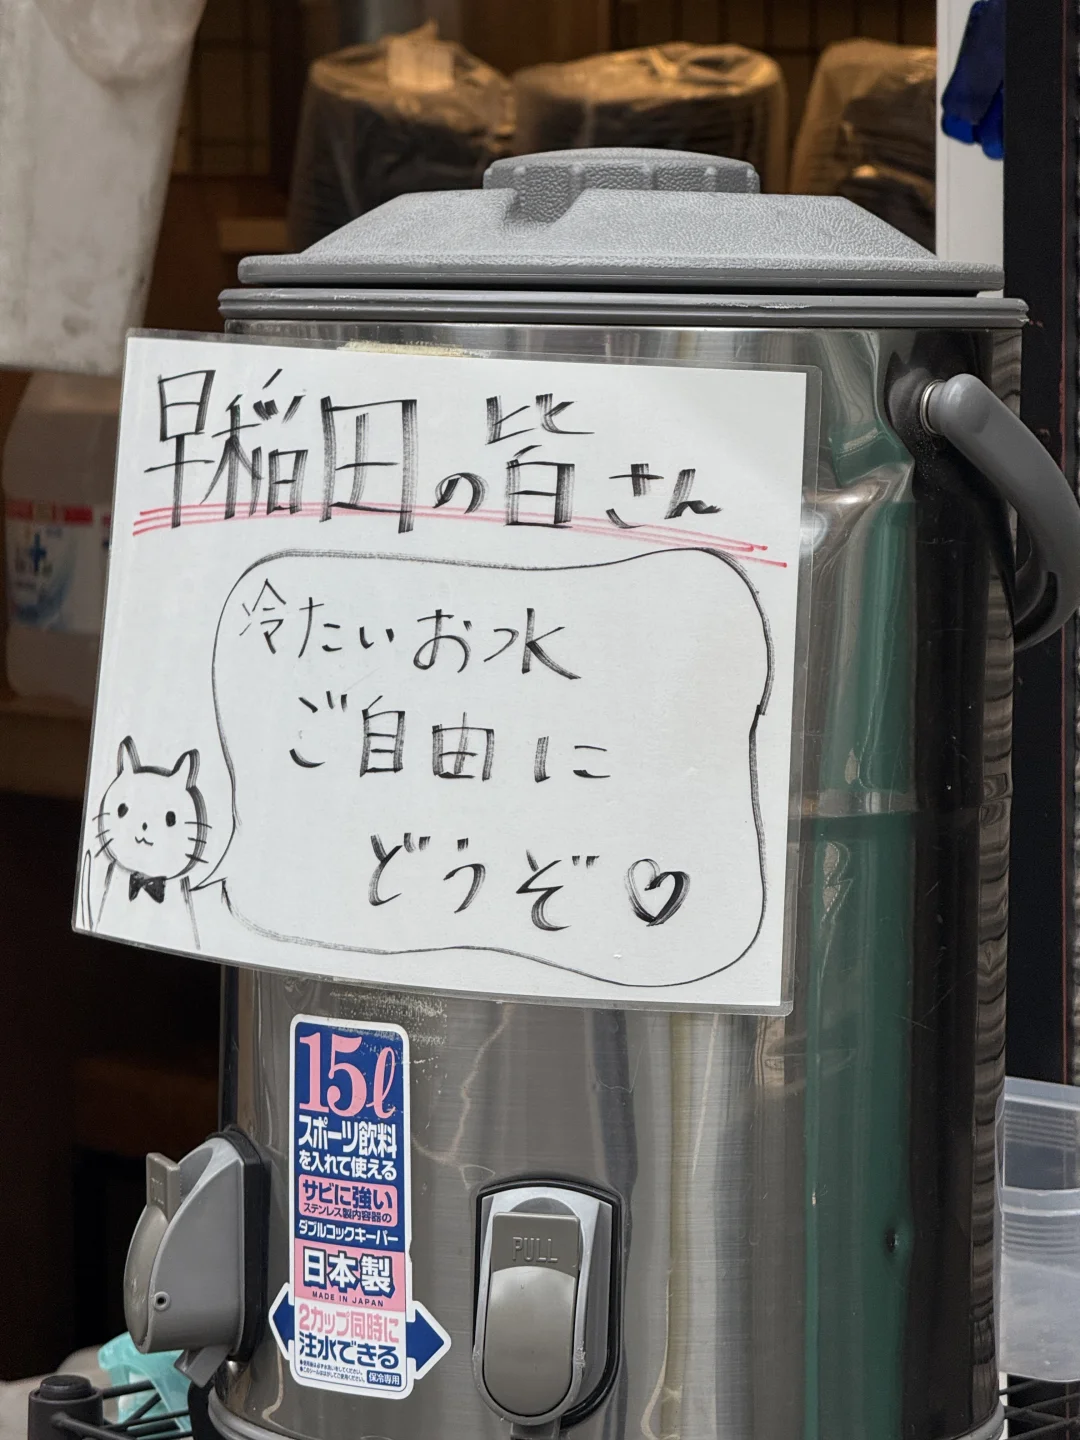 早稲田の皆さん
冷たいお水
ご自由に
どうぞ♡
15ℓ
スポーツ飲料
を入れて使える
サビに強い
ステンレス製内容器の
ダブルコックキーパー
日本製
MADE IN JAPAN
2カップ同時に
注水できる
保冷専用
PULL